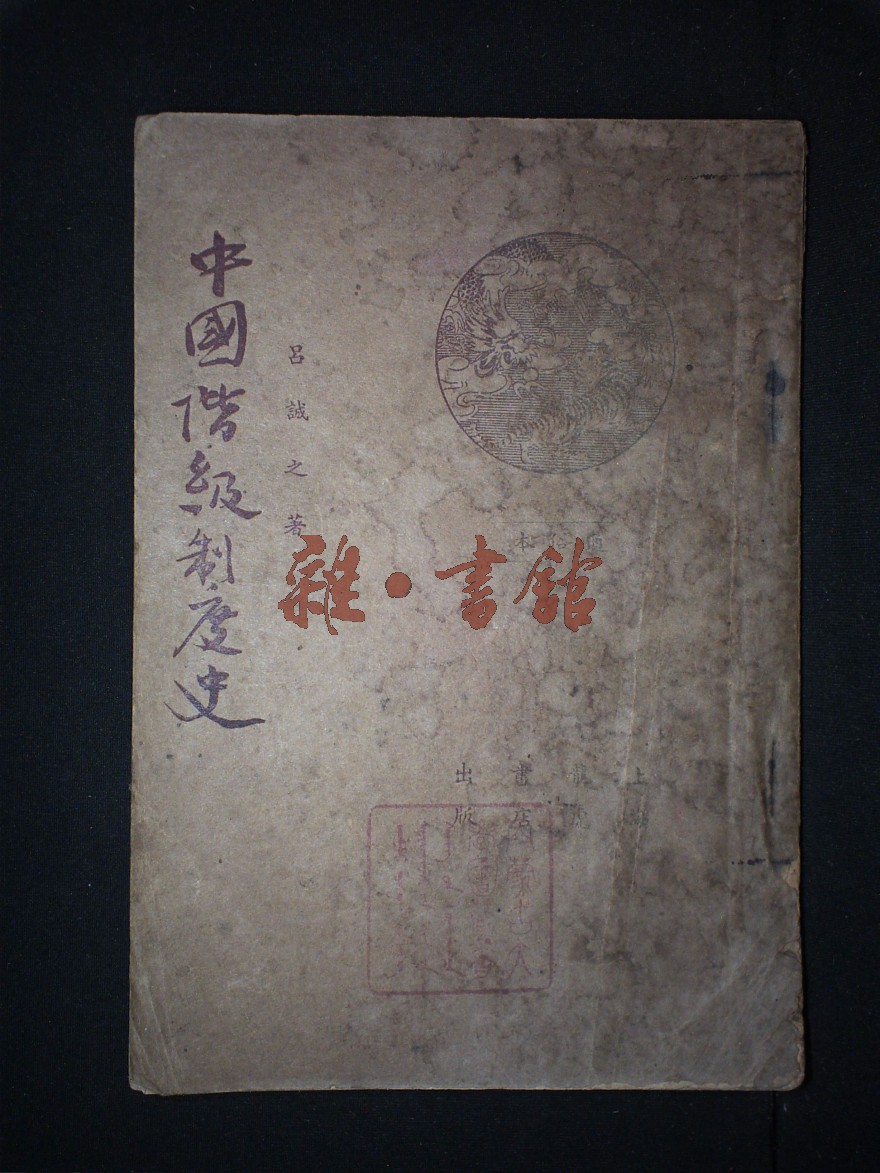 中國階級制度史
呂誠之著
本
雜·書館
上海
龍虎
書店
出版